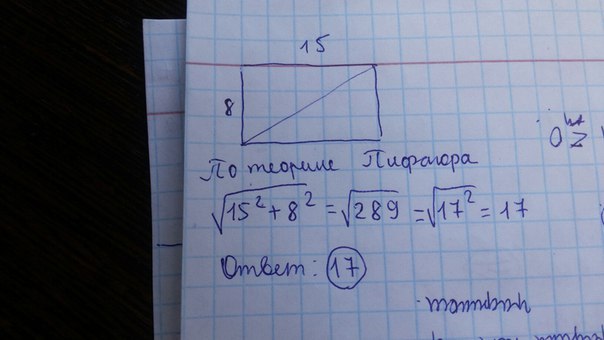 15
8
По теореме Пифагора
√15² + 8² = √289 = √17² = 17
Ответ: 17